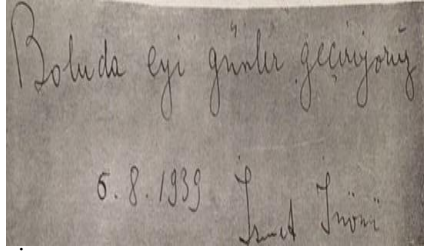 Boluda eyi günler geçiriyoruz
6.8.1939 İsmet İnönü